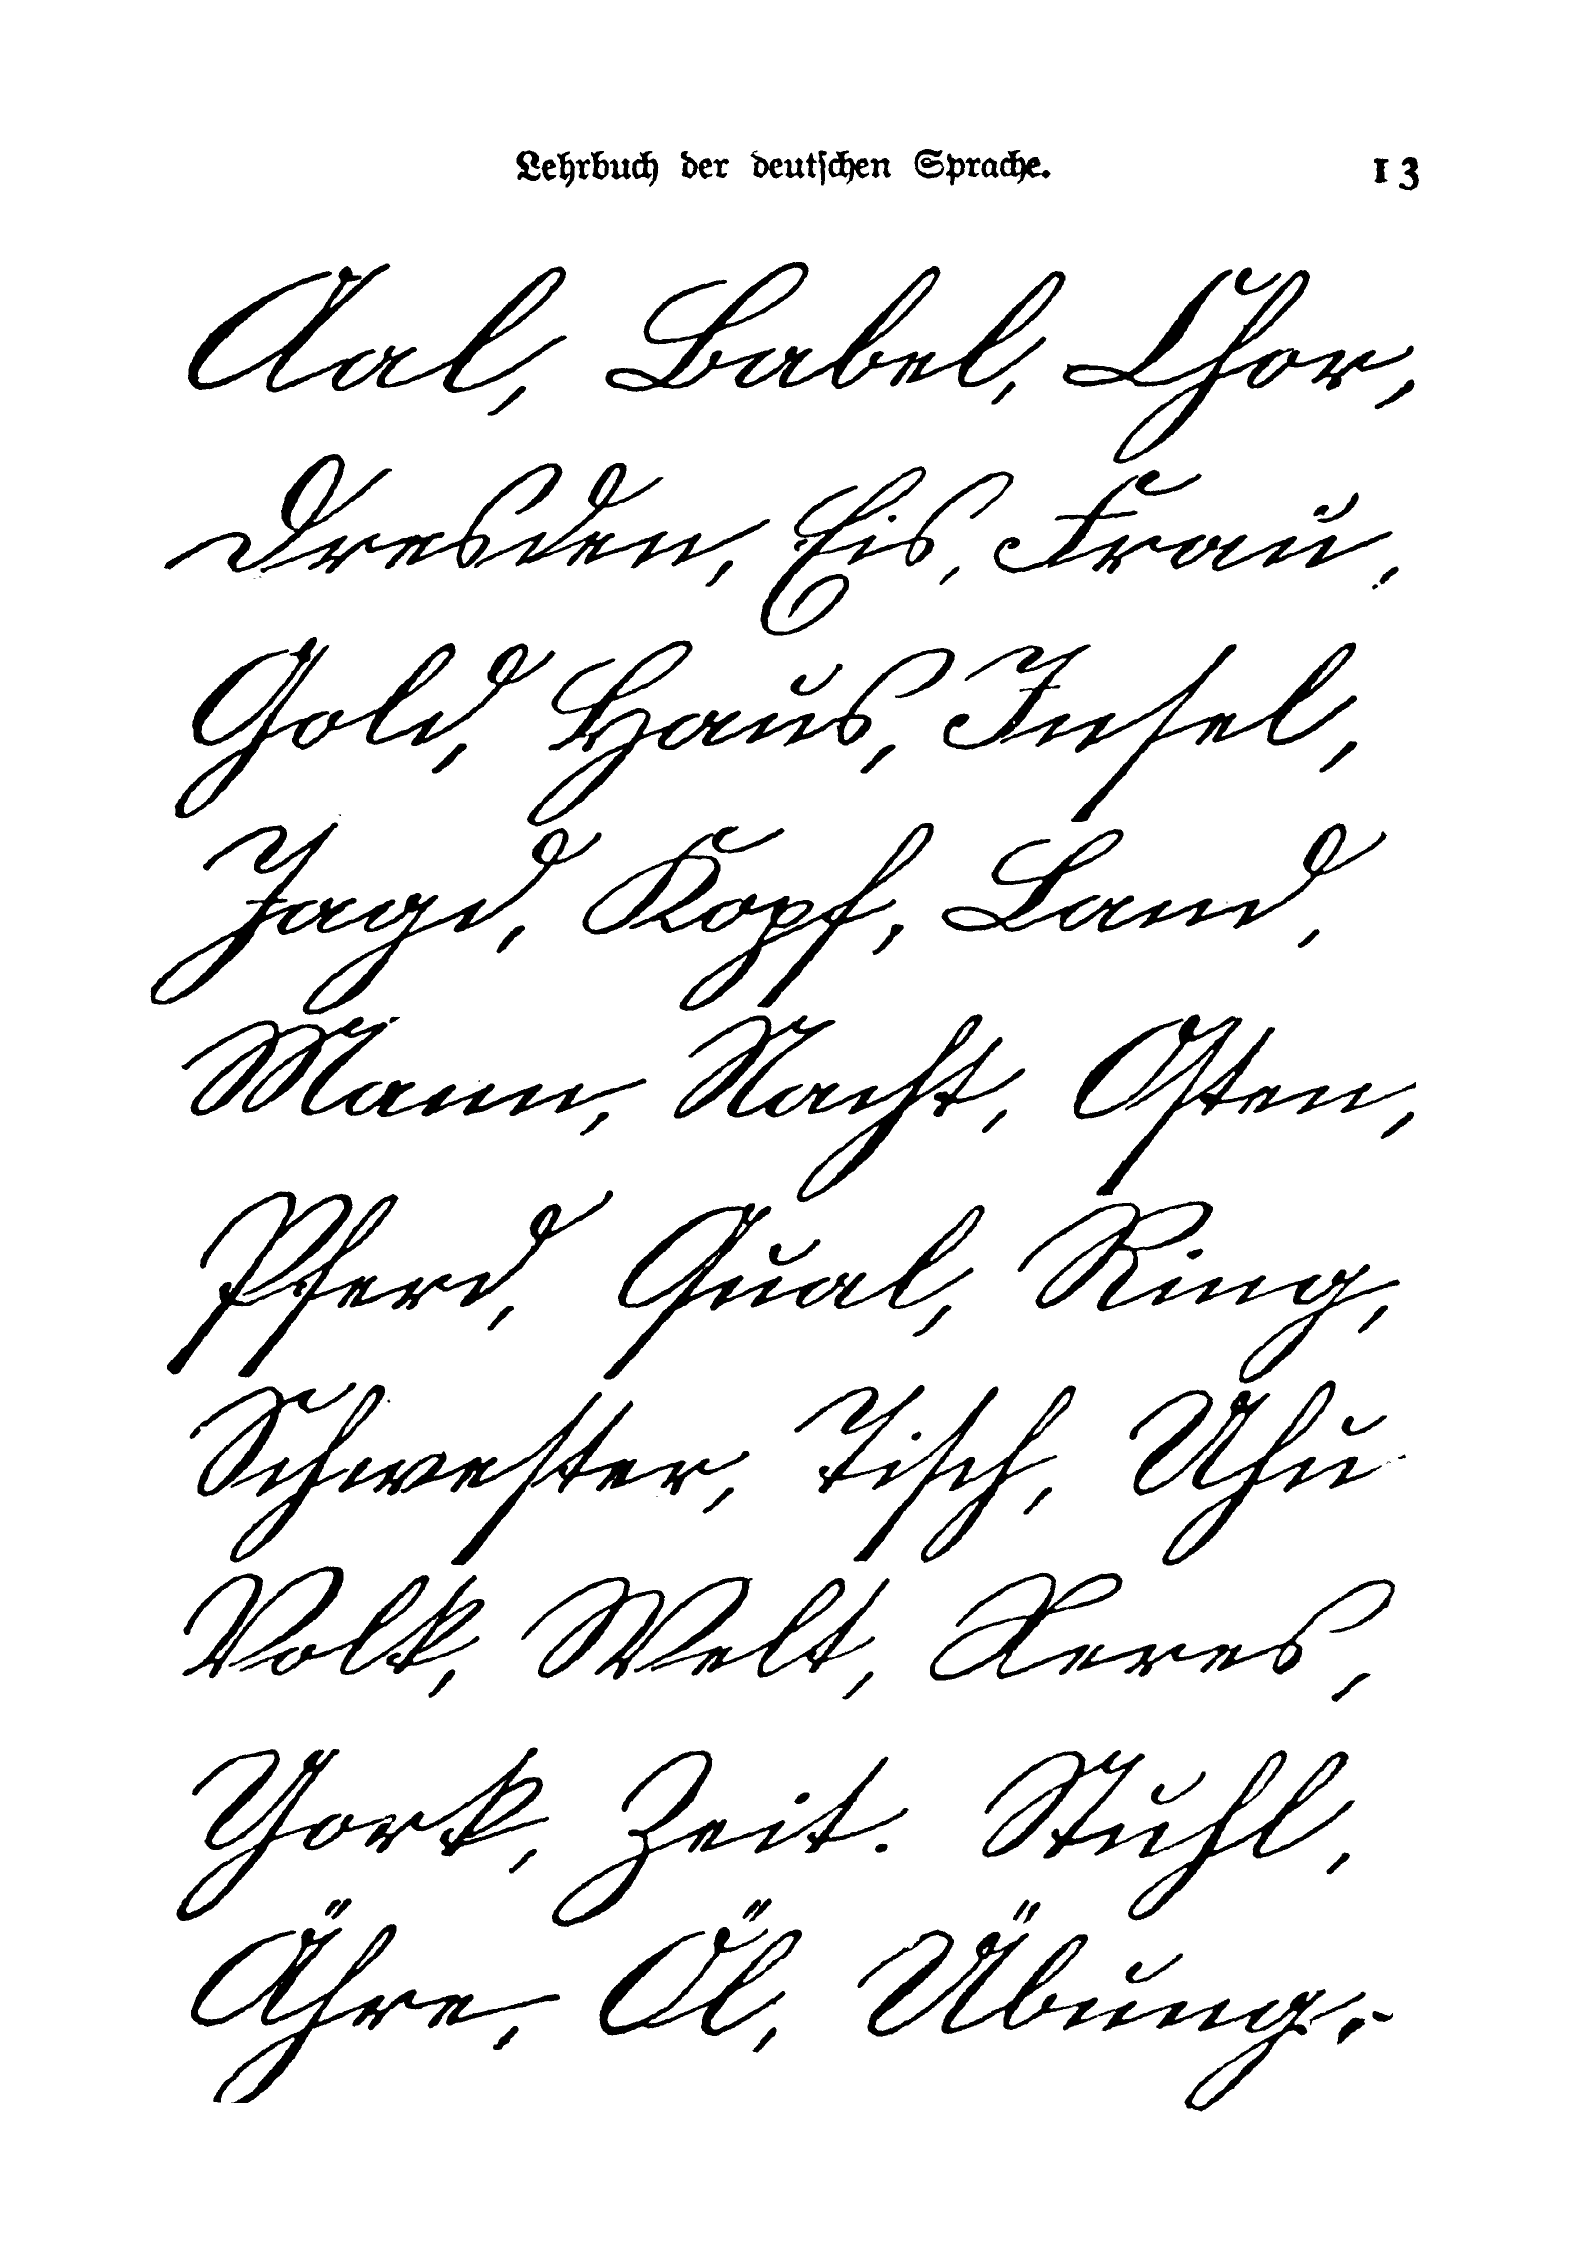 Lehrbuch der deutschen Sprache. 13
Aal, Babel, Chor,
Dresden, Eis, Frau,
Gold, Haus, Insel,
Jagd, Kopf, Land,
Mann, Nacht, Osten,
Pferd, Qual, Ring,
Schwester, Tisch, Uhu
Volk, Welt, Xeres,
York, Zeit. Stuhl,
Ähre, Öl, Übung.